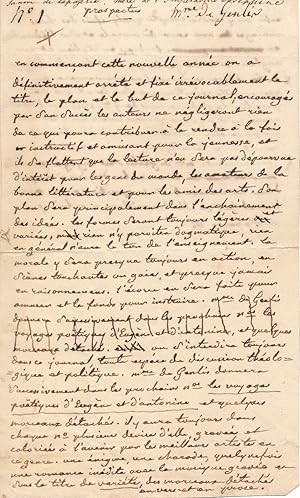 N° 1 prospectus Mme de Genlis
en commençant cette nouvelle année on a
définitivement arreté et fixé irrévocablement le
titre, le plan et le but de ce journal, encouragés
par son succès les auteurs ne négligeront rien
de ce qui pourra contribuer à le rendre à la fois
instructif et amusant pour la jeunesse, et
ils se flattent que la lecture n'en sera pas dépourvue
d'intérêt pour les gens du monde les amateurs de la
bonne littérature et pour les amis des arts. Son
plan sera principalement dans l'enchainement
des idées. les formes seront toujours légères et
variées, rien n'y paroitra dogmatique, rien
en général n'aura le ton de l'enseignement. La
morale y sera presque toujours en action, en
scènes touchantes ou gaies, et presque jamais
en raisonnemens. l'écorce en sera faite pour
amuser et le fonds pour instruire. Mme de Genlis
donnera successivement dans les prochains nos les
voyages poétiques d'Eugène et d'antonine, et quelques
morceaux détachés. on s'interdira toujours
dans ce journal toute espèce de discussion théolo-
gique et politique. Mme de Genlis donnera
successivement dans les prochains nos les voyages
poétiques d'Eugène et d'antonine et quelques
morceaux détachés. il y aura toujours dans
chaque no plusieurs dessins gravés et
coloriés à l'avenir par les meilleurs artistes en
ce genre. une énigme une charade, quelquefois
une romance inédite avec la musique gravée et
sous le titre de variétés, des morceaux détachés
en vers et en prose.